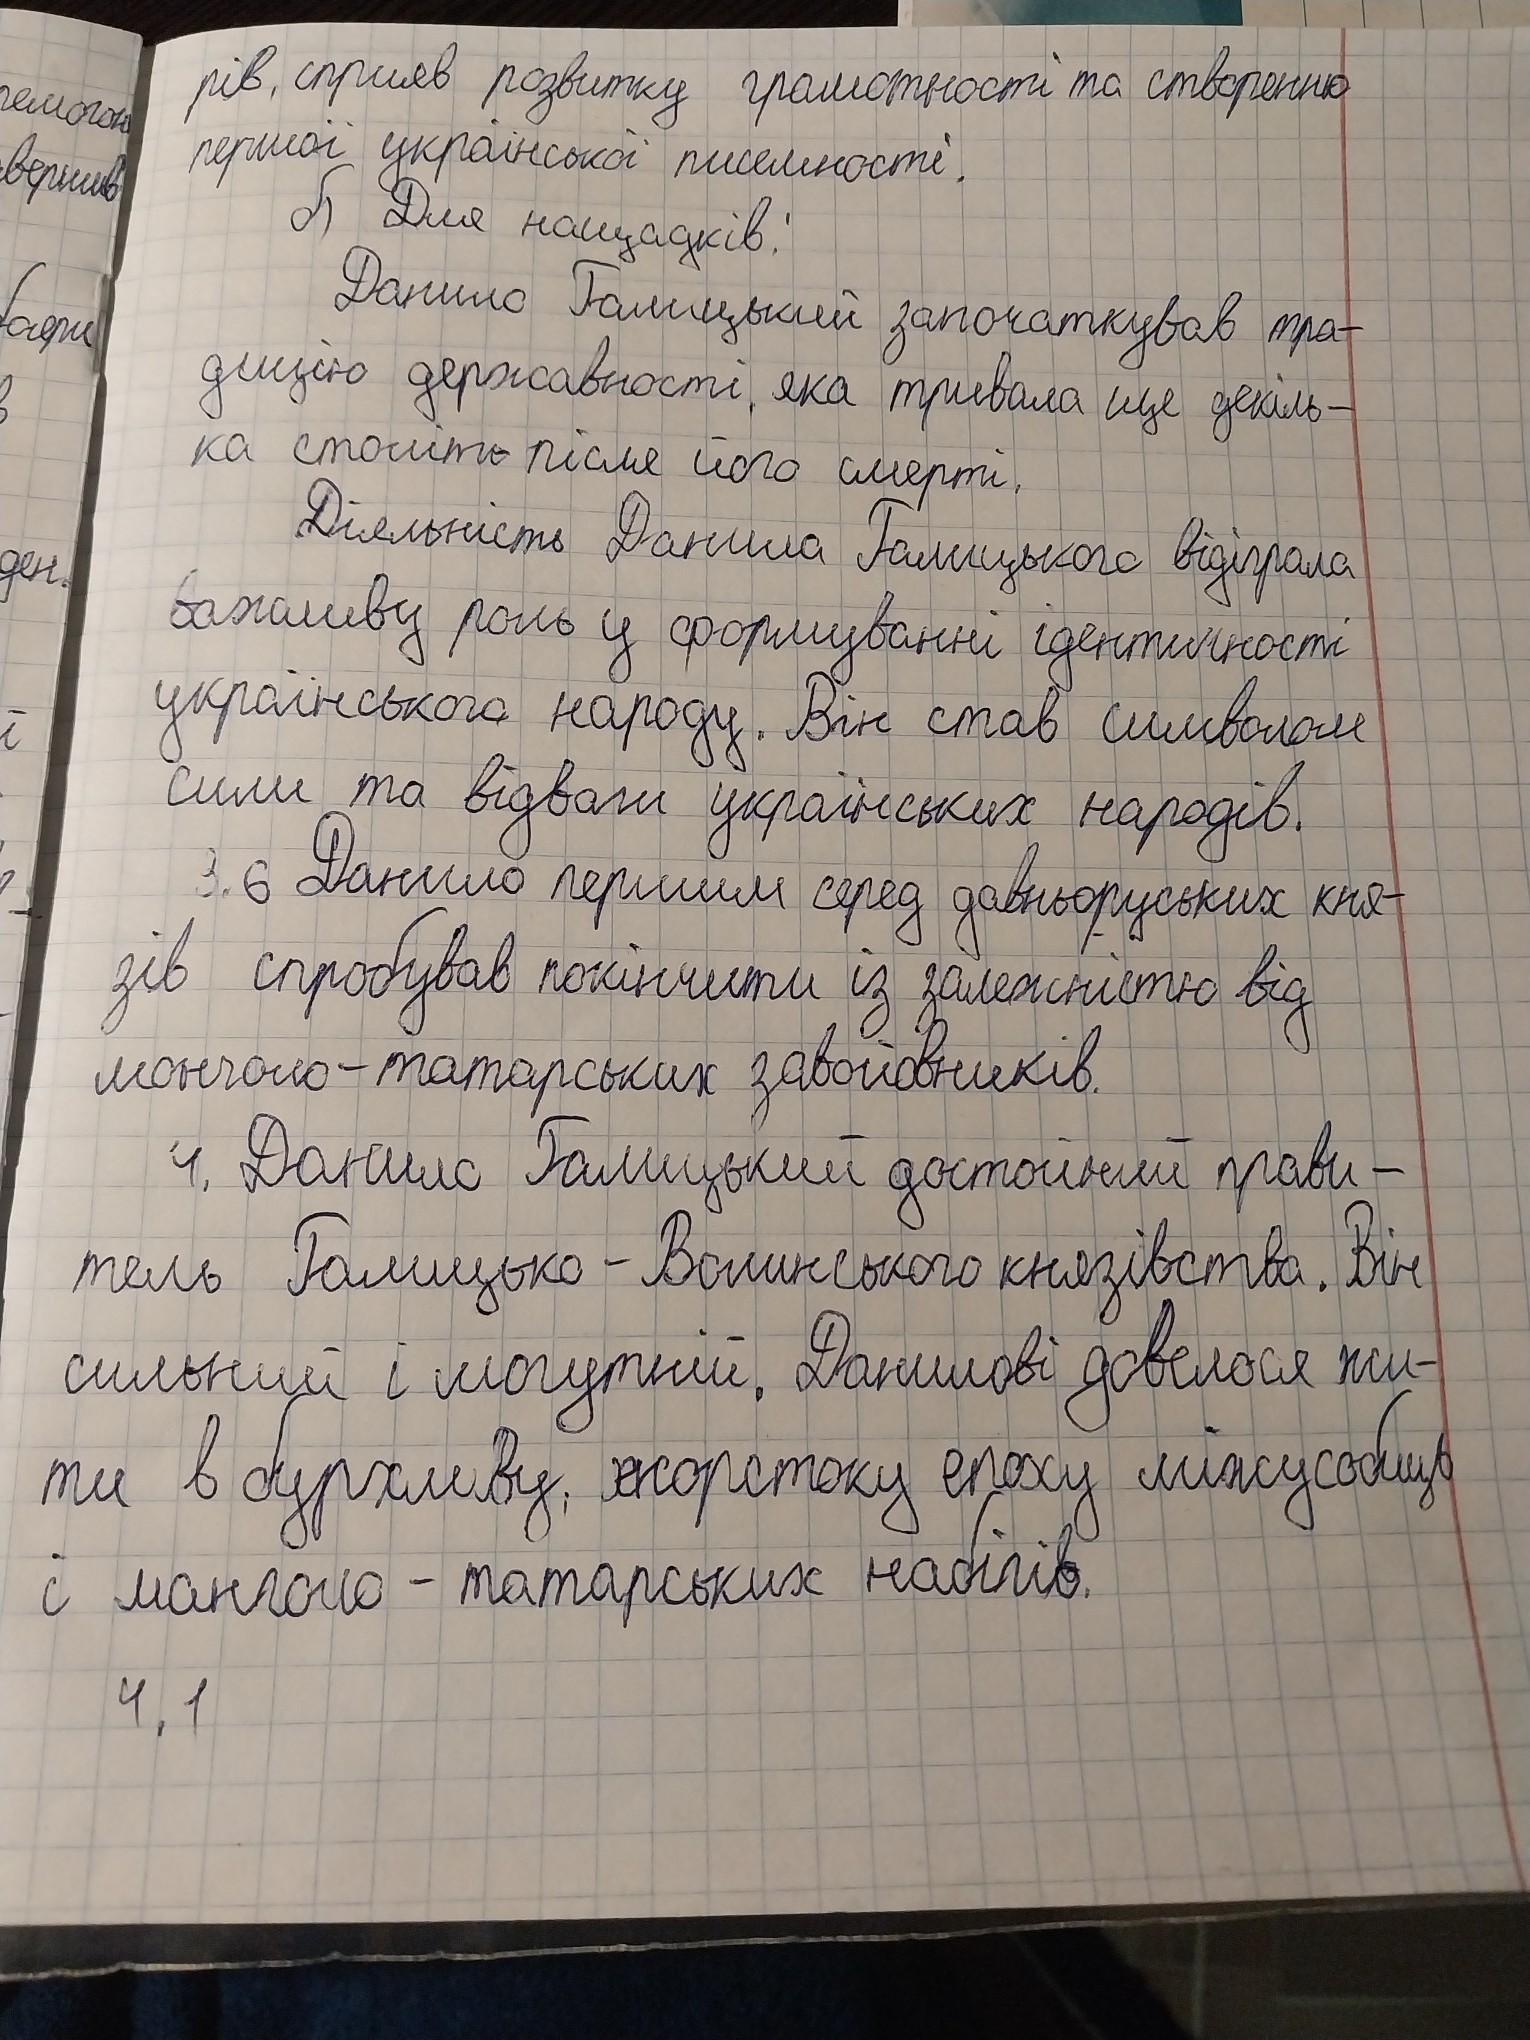 рів, сприяв розвитку грамотності та створенню
першої української писемності.
б) Для нащадків:
Данило Галицький започаткував тра-
дицію державності, яка тривала ще декіль-
ка століть після його смерті.
Діяльність Данила Галицького відіграла
важливу роль у формуванні ідентичності
українського народу. Він став символом
сили та відваги українських народів.
3.6 Данило першим серед давньоруських кня-
зів спробував покінчити із залежністю від
монголо-татарських завойовників.
4. Данило Галицький достойний прави-
тель Галицько-Волинського князівства. Він
сильний і могутній. Данилові довелося жи-
ти в бурхливу, жорстоку епоху міжусобиць
і манголо-татарських набігів.
4.1
ден.